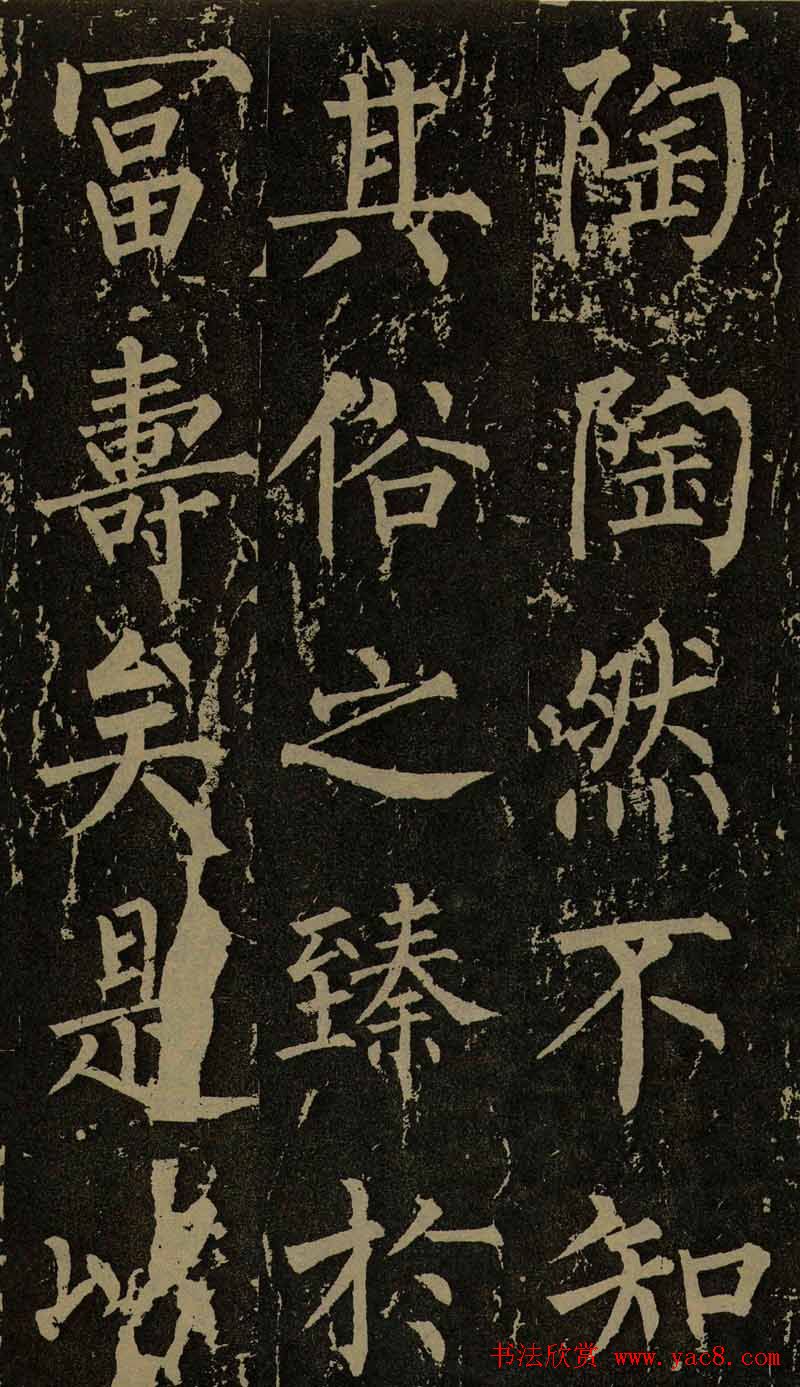 陶陶然不知
其俗之臻於
冨壽矣是
书法欣赏 www.yac8.com